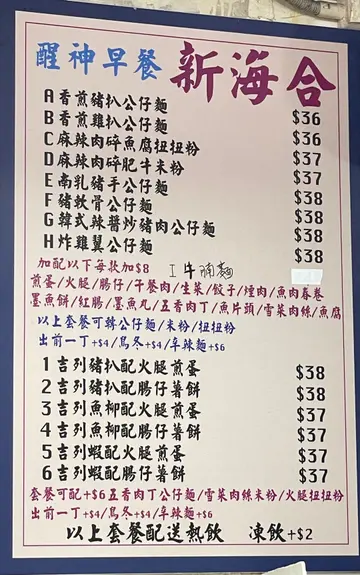 醒神早餐 新海合
A香煎豬扒公仔麵 $36
B香煎雞扒公仔麵 $36
C麻辣肉碎魚腐扭扭粉 $37
D麻辣肉碎肥牛米粉 $37
E南乳豬手公仔麵 $38
F豬軟骨公仔麵 $38
G韓式辣醬炒豬肉公仔麵 $38
H炸雞翼公仔麵 $38
加配以下每款加$8 I牛腩麵
煎蛋/火腿/腸仔/午餐肉/生菜/餃子/煙肉/魚肉春卷
墨魚餅/紅腸/墨魚丸/五香肉丁/魚片頭/雪菜肉絲/魚腐
以上套餐可轉公仔麵/米粉/扭扭粉
出前一丁+$4/烏冬+$4/辛辣麵+$6
1吉列豬扒配火腿煎蛋 $38
2吉列豬扒配腸仔薯餅 $38
3吉列魚柳配火腿煎蛋 $37
4吉列魚柳配腸仔薯餅 $37
5吉列蝦配火腿煎蛋 $37
6吉列蝦配腸仔薯餅 $37
套餐可配+$6五香肉丁公仔麵/雪菜肉絲米粉/火腿扭扭粉
出前一丁+$4/烏冬+$4/辛辣麵+$6
以上套餐配送熱飲 凍飲+$2